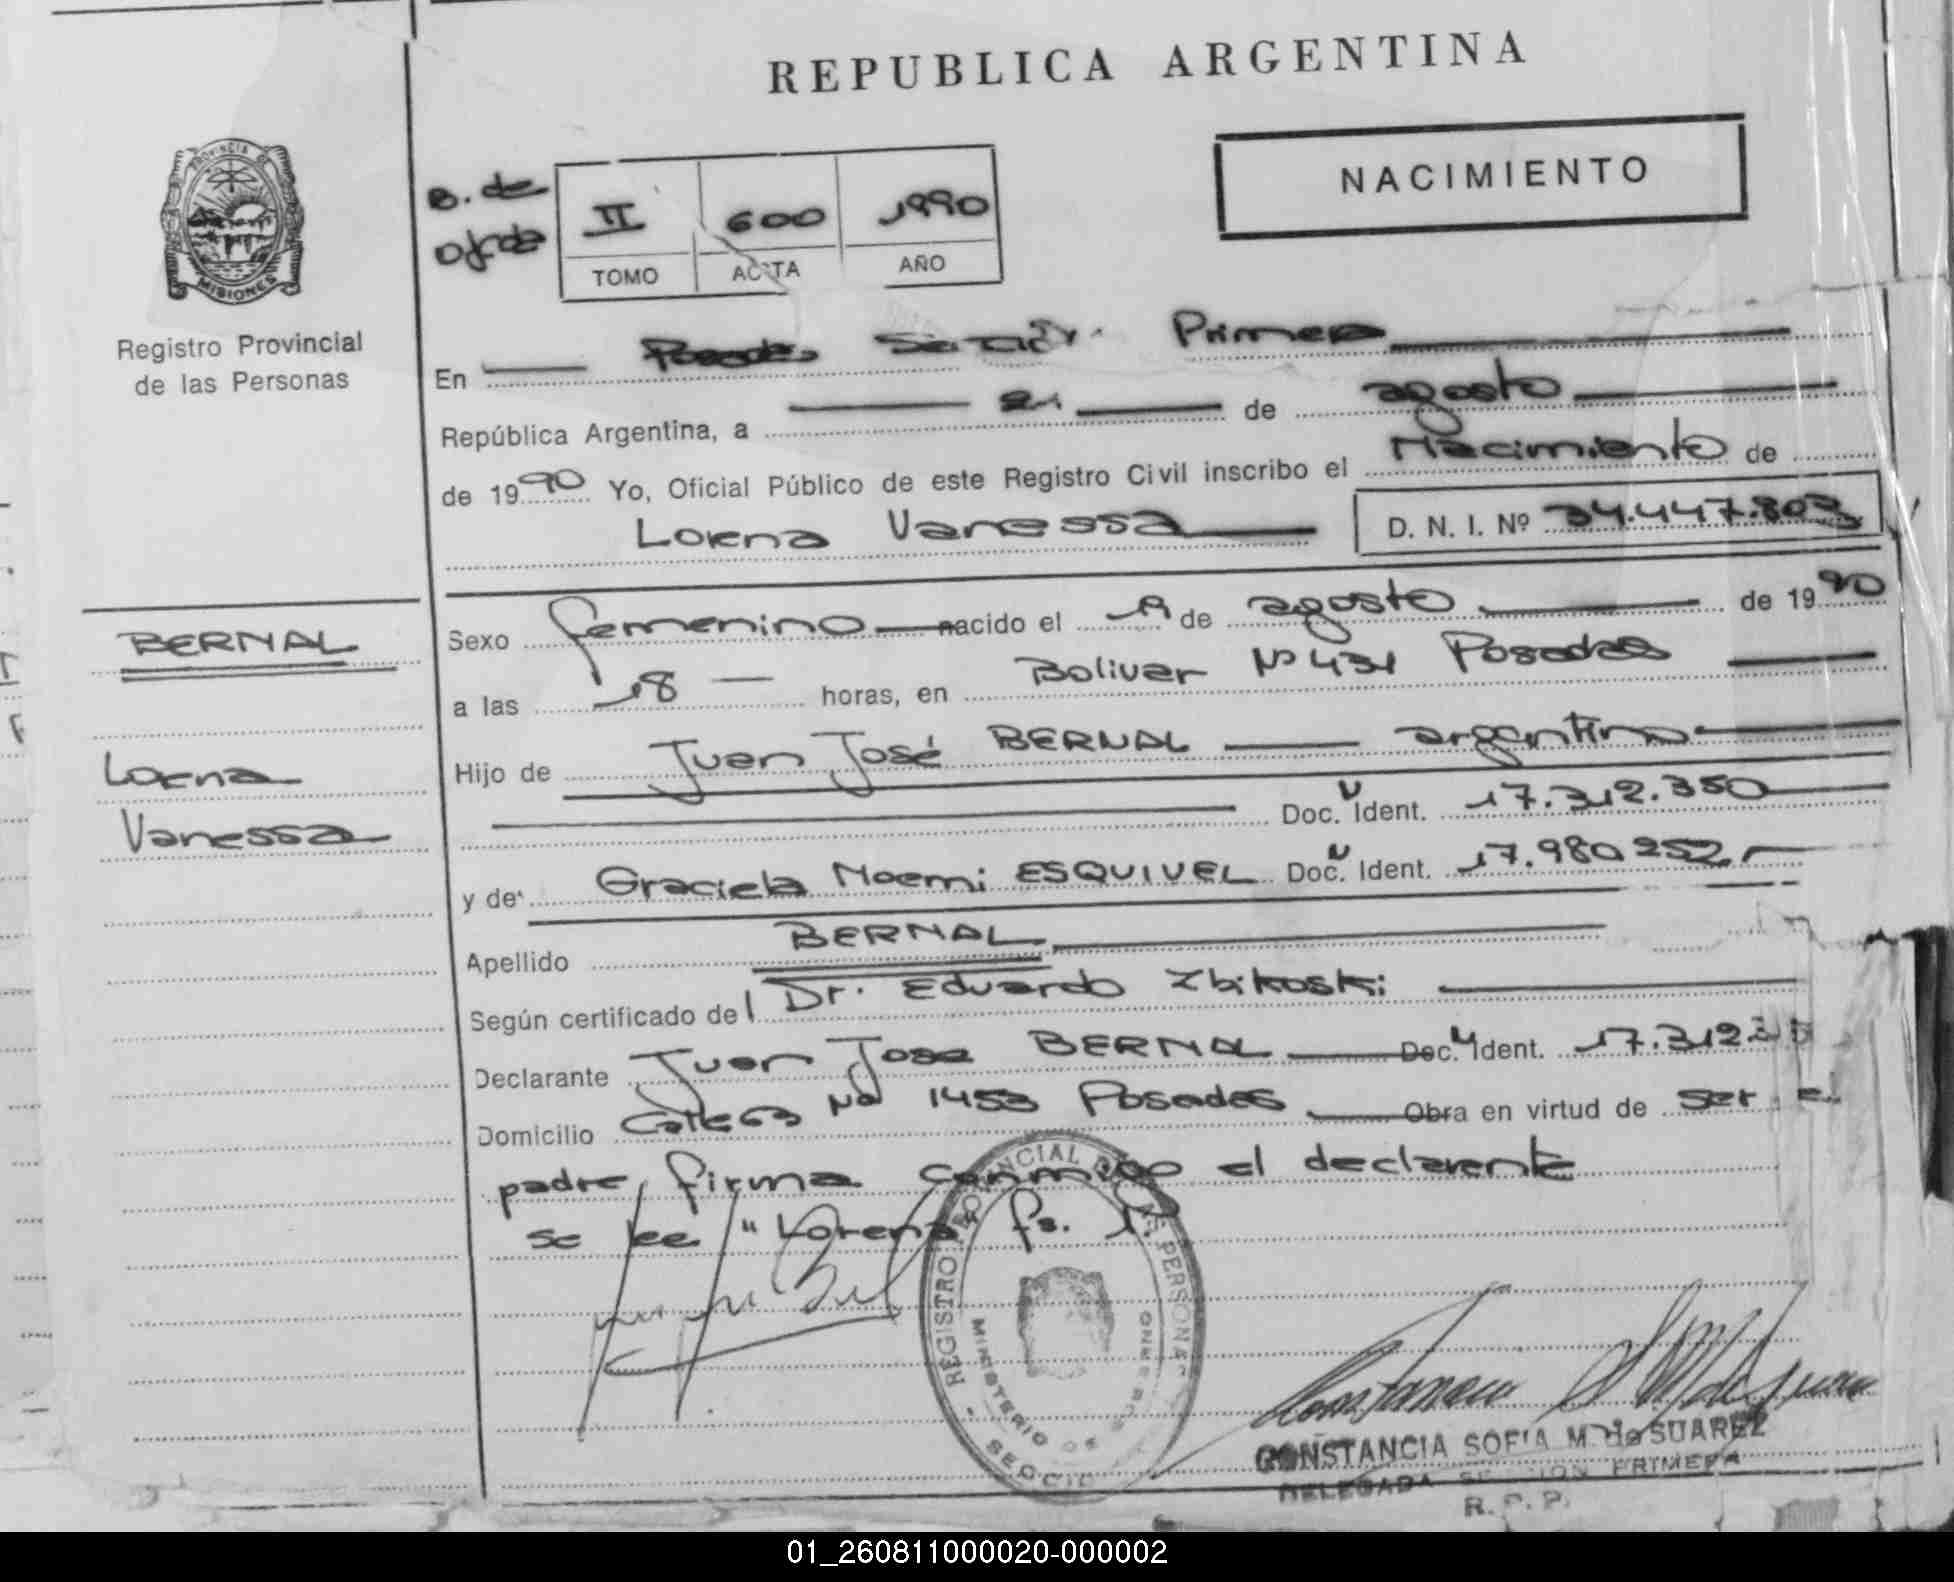 REPUBLICA ARGENTINA
NACIMIENTO
B. de
II 600 1990
TOMO ACTA AÑO
PROVINCIA DE
MISIONES
Registro Provincial
de las Personas
En Posadas Sección Primera
República Argentina, a 21 de agosto
de 1990 Yo, Oficial Público de este Registro Civil inscribo el Nacimiento de
Lorena Vanessa D. N. I. Nº 34.447.803
BERNAL
Lorena
Vanessa
Sexo femenino nacido el 19 de agosto de 1990
a las 18 horas, en Bolivar Nº 431 Posadas
Hijo de Juan José BERNAL argentino
Doc. Ident. 17.312.350
y de Graciela Noemi ESQUIVEL Doc. Ident. 17.980.252
Apellido BERNAL
Según certificado del Dr. Eduardo Zbikoski
Declarante Juan Jose BERNAL Doc. Ident. 17.312.
Domicilio Nº 1453 Posadas Obra en virtud de ser el
padre, firma conmigo el declarante
se lee "Lorena" fs. 1.
REGISTRO PROVINCIAL DE LAS PERSONAS
MINISTERIO DE GOBIERNO
CONSTANCIA SOFIA M. de SUAREZ
DELEGADA SECCION PRIMERA
R. P. P.
01_260811000020-000002